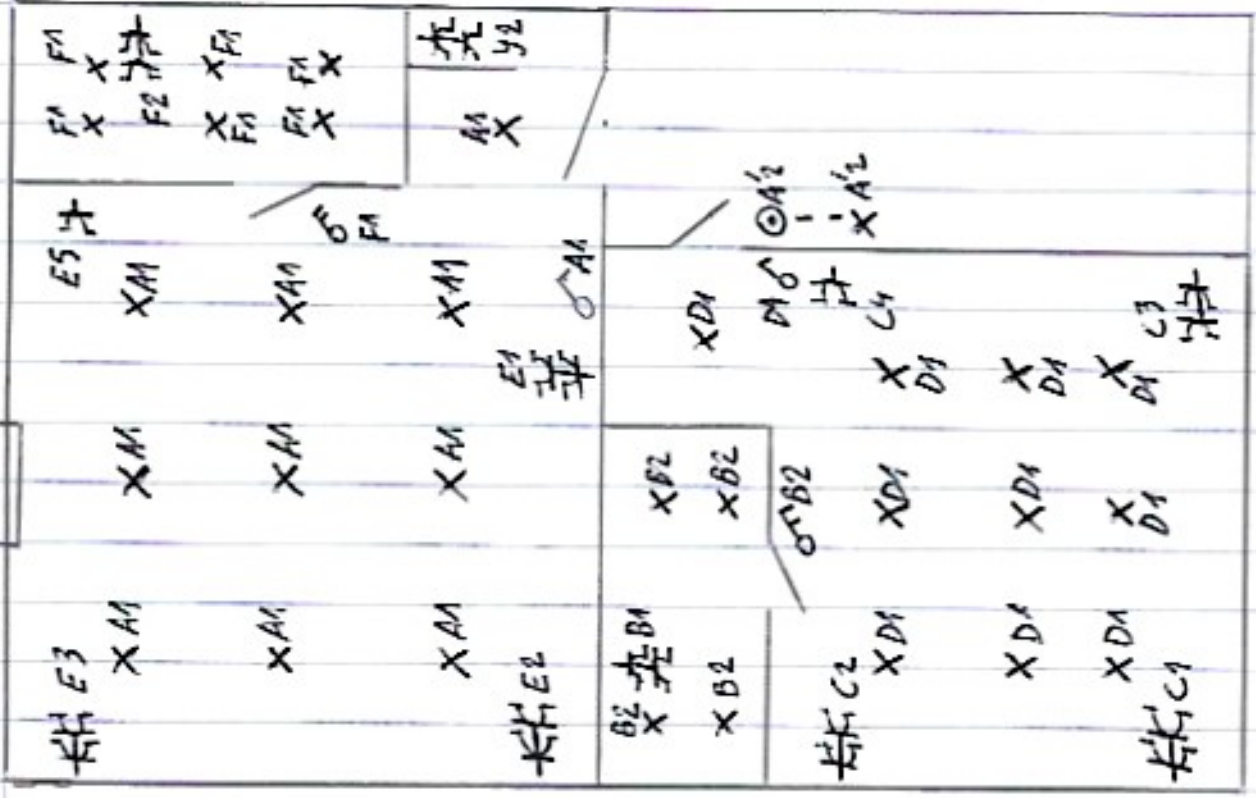 F1
F1
F1
У2
F1
F2
F1
F1
A1
E5
F1
A'2
A'2
A1
A1
A1
A1
D1
D1
C4
C3
E1
D1
D1
D1
A1
A1
A1
B2
B2
B2
D1
D1
D1
E3
A1
A1
A1
E2
B2
B1
B2
C2
D1
D1
D1
C1